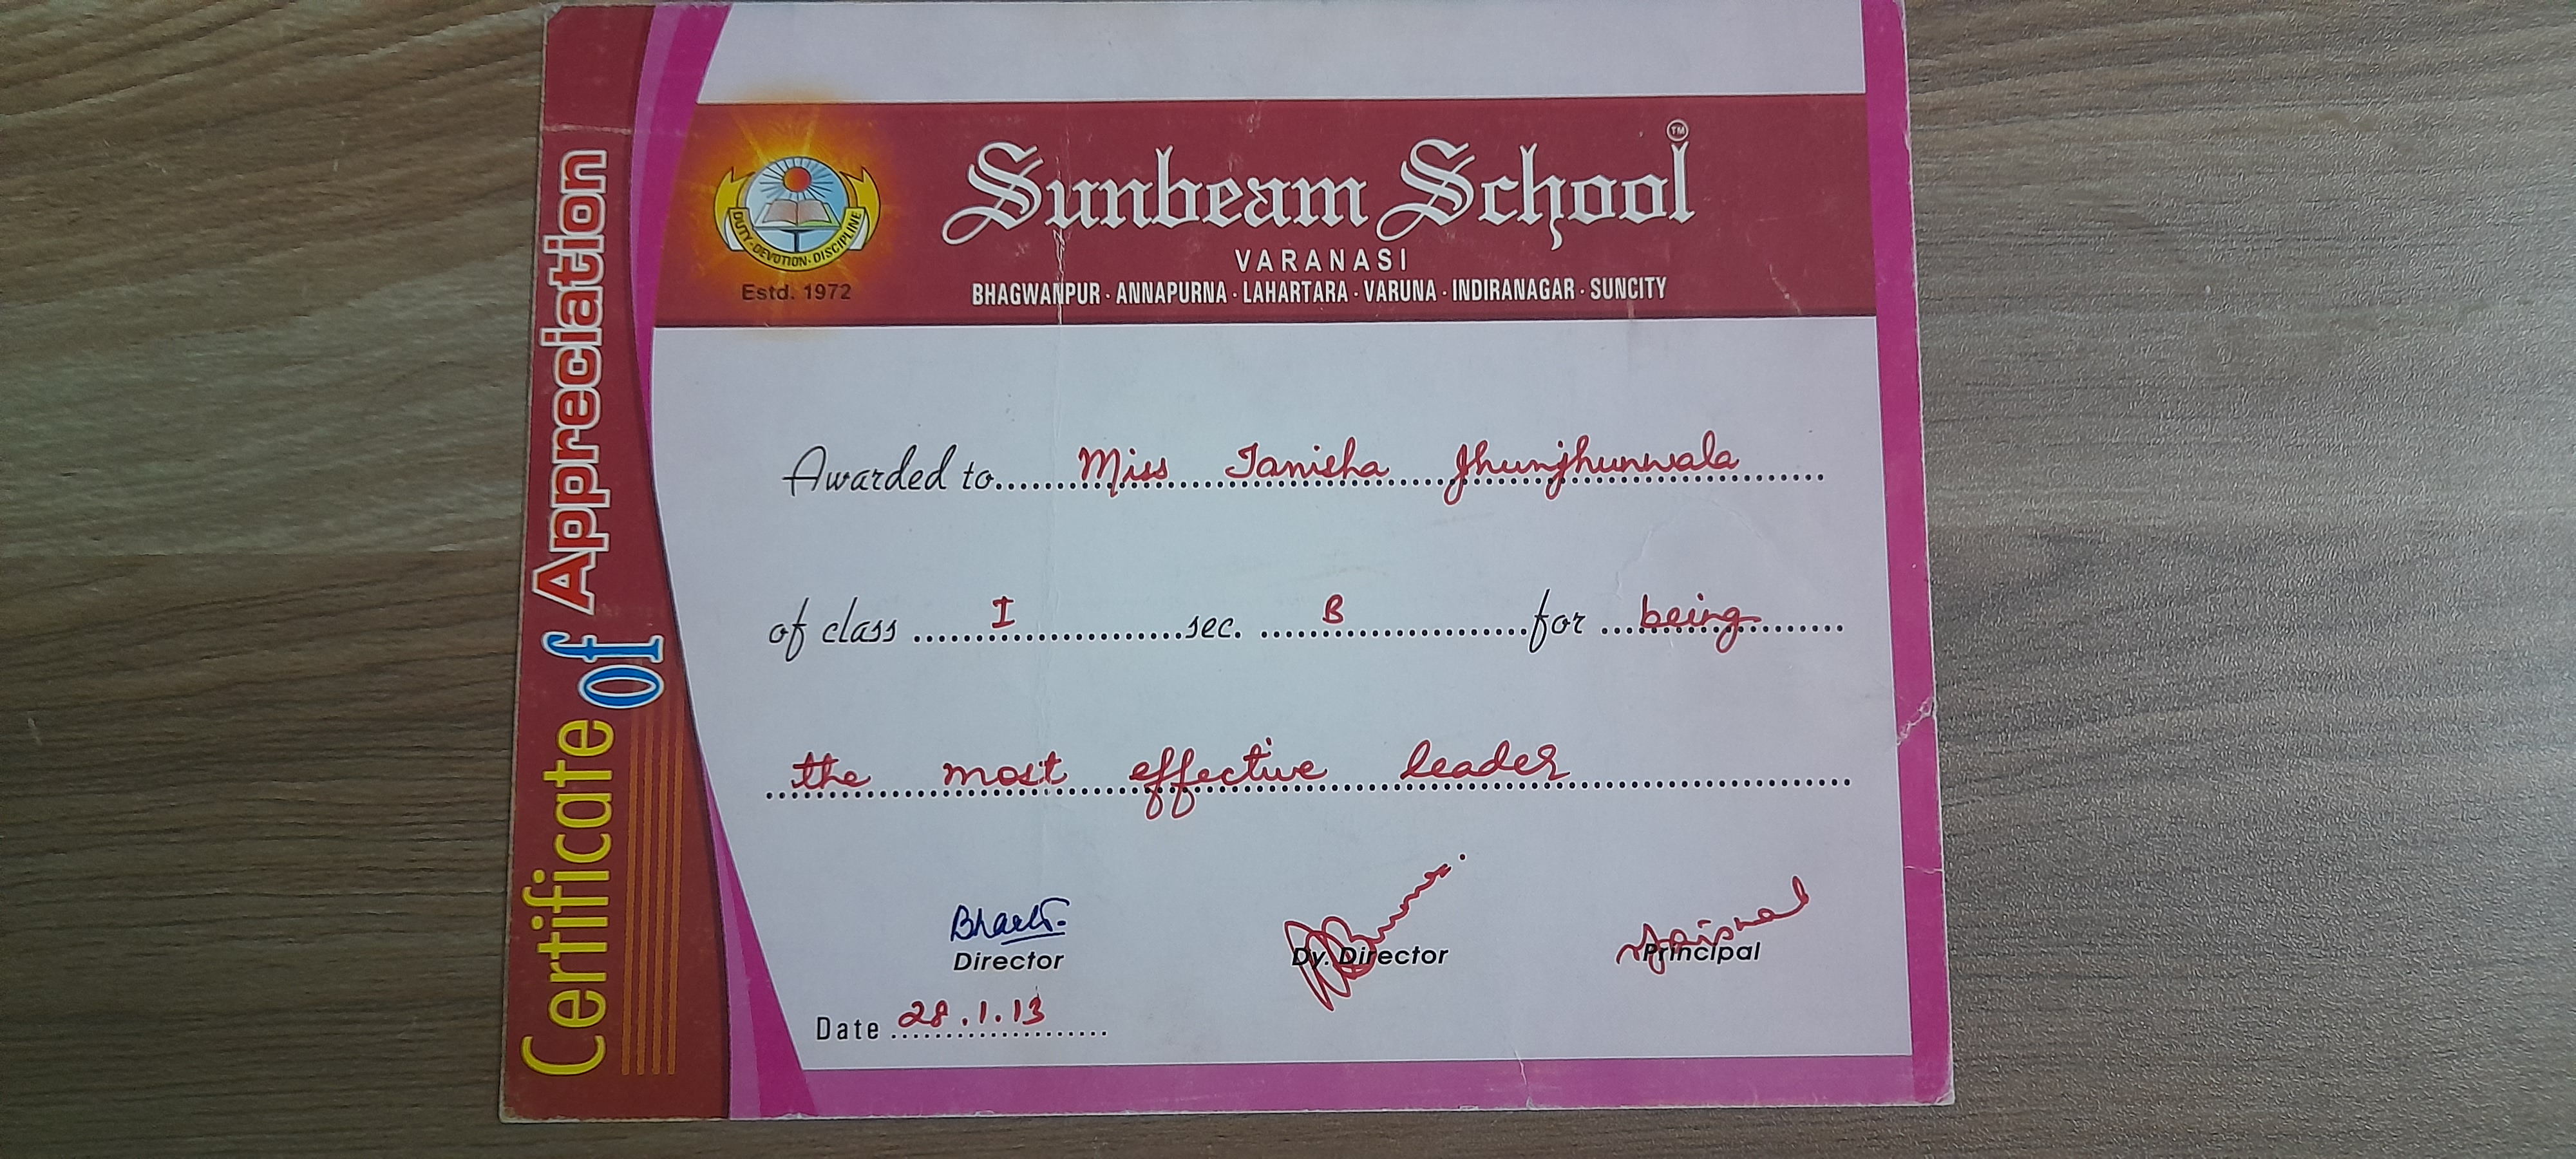 Certificate of Appreciation
Sunbeam School TM
DUTY · DEVOTION · DISCIPLINE
Estd. 1972
VARANASI
BHAGWANPUR · ANNAPURNA · LAHARTARA · VARUNA · INDIRANAGAR · SUNCITY
Awarded to Miss Tanisha Jhunjhunwala
of class I sec. B for being
the most effective leader
Director Dy. Director Principal
Date 28.1.13